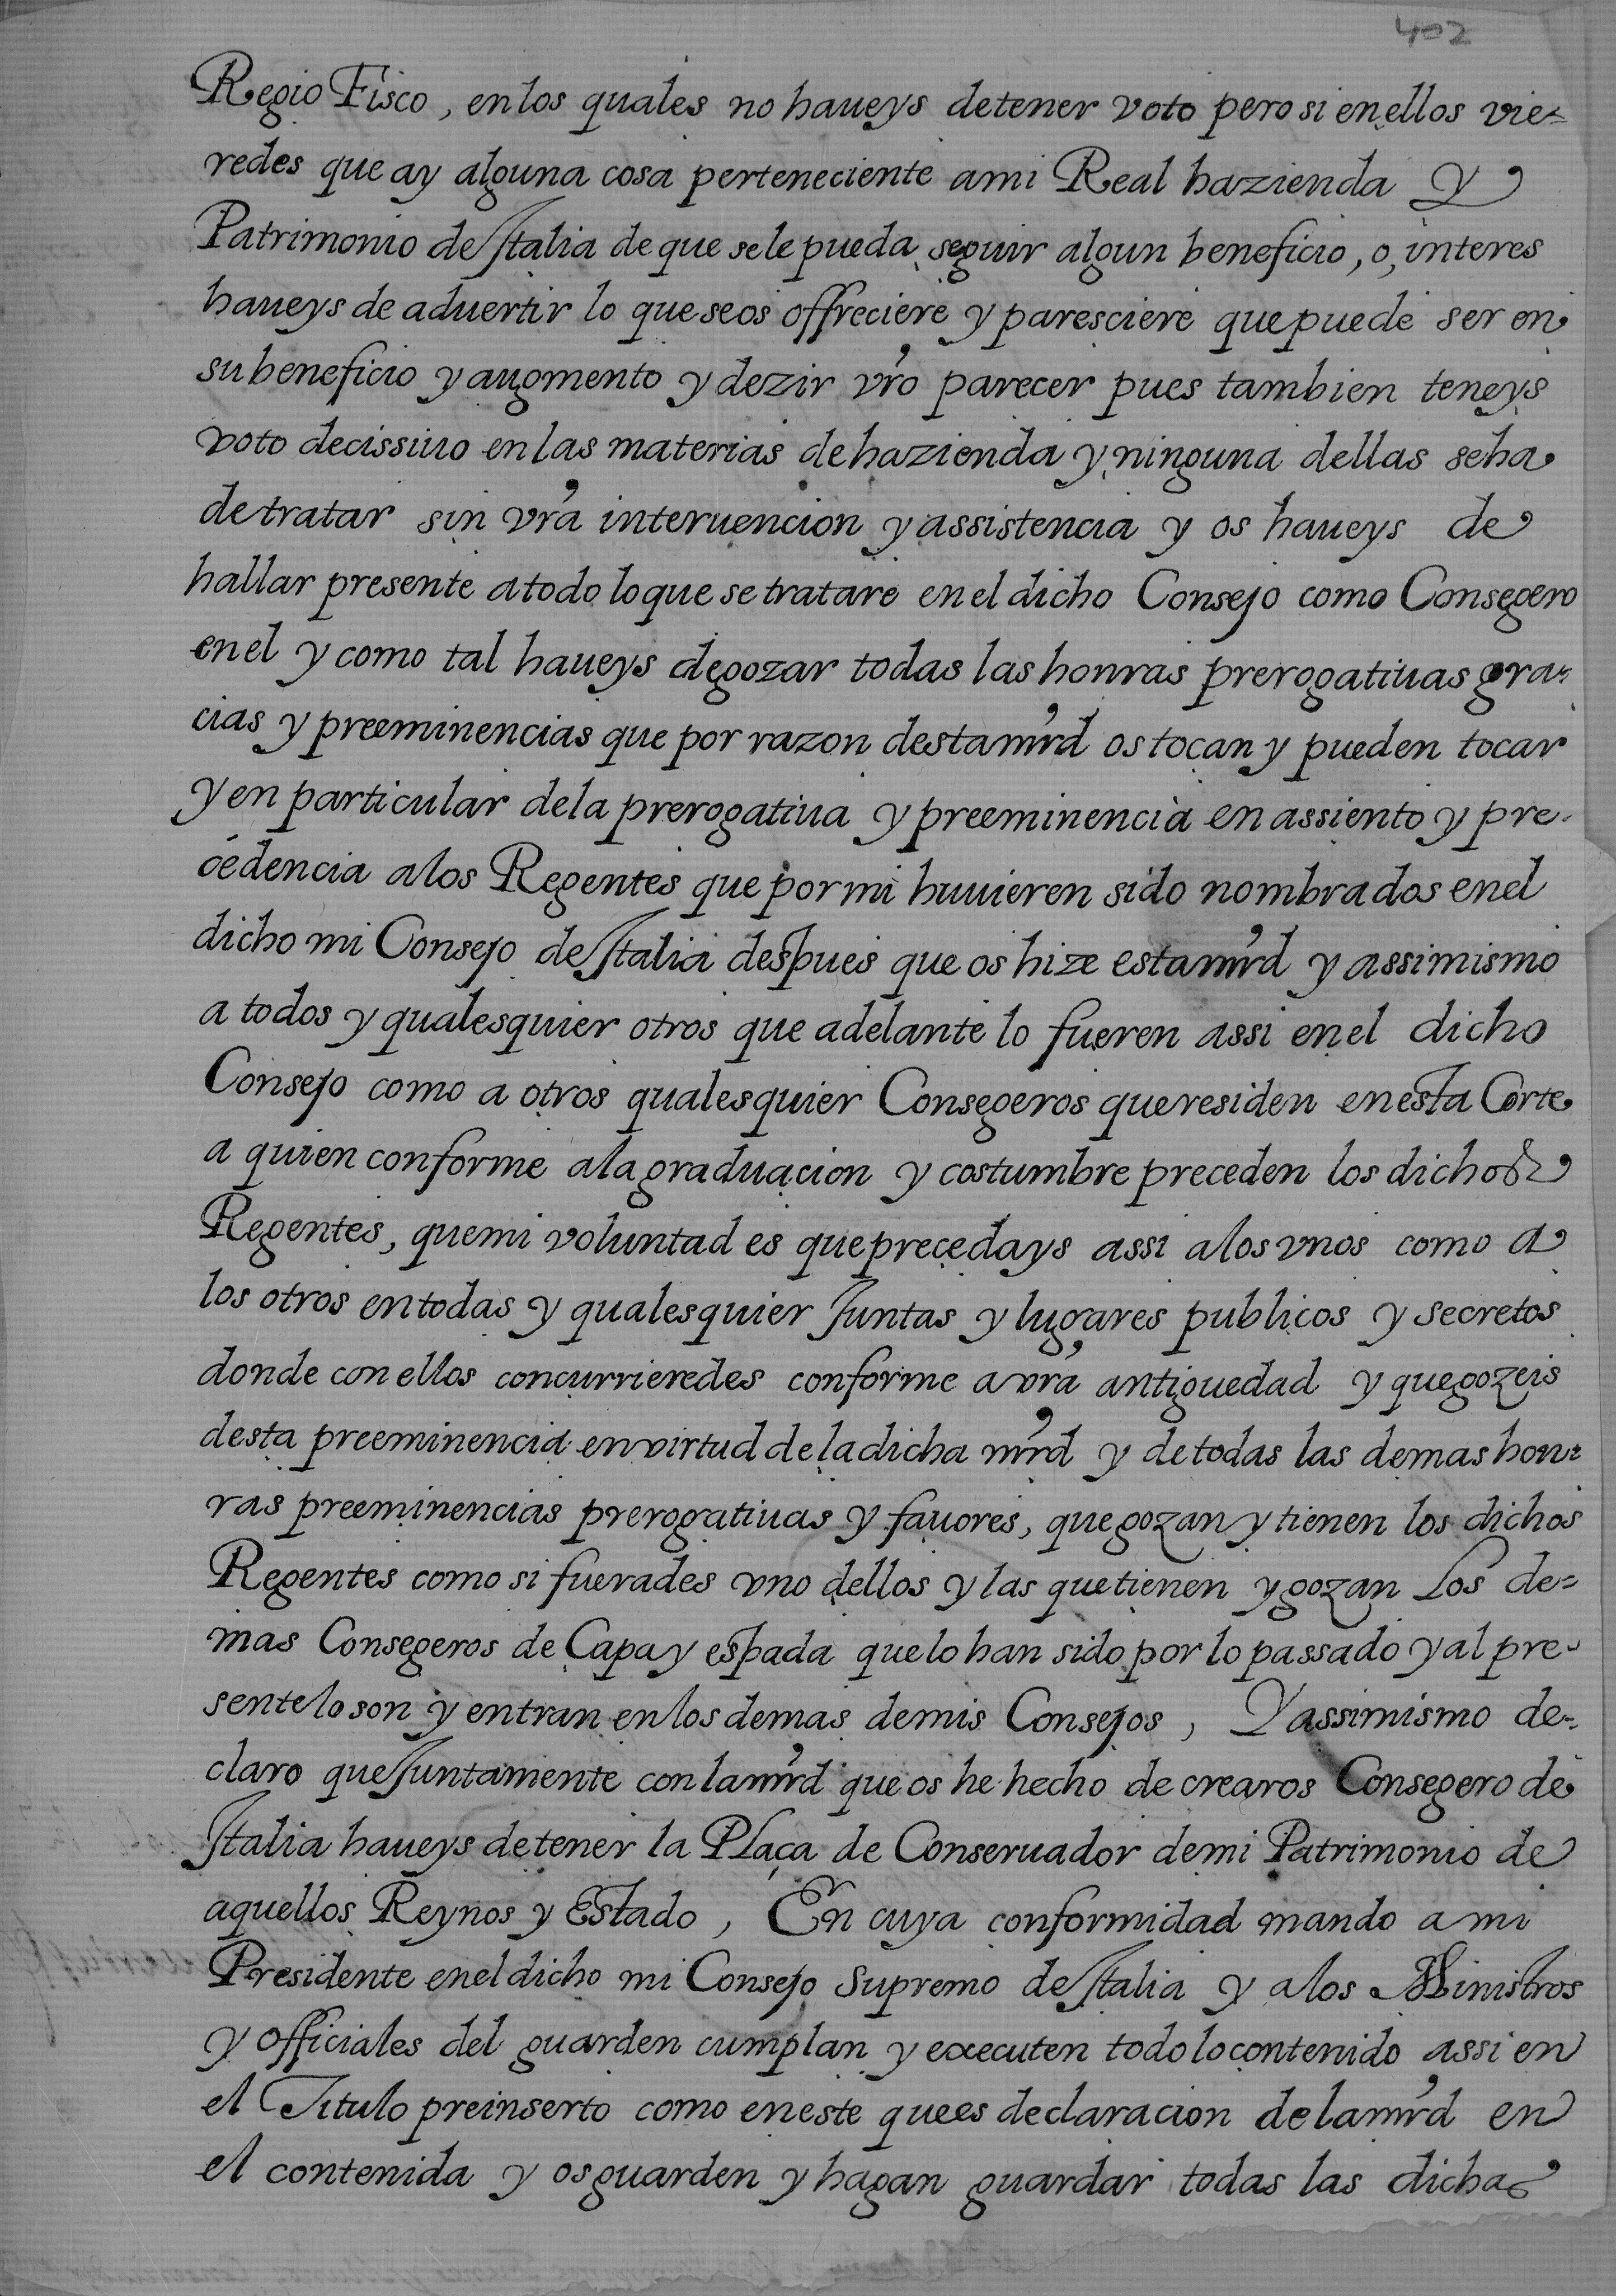 402
Regio Fisco, en los quales no haueys de tener voto pero si en ellos vie-
redes que ay alguna cosa perteneciente a mi Real hazienda y
Patrimonio de Italia de que se le pueda seguir algun beneficio, o, interes
haueys de aduertir lo que se os offreciere y paresciere que puede ser en
su beneficio y augmento y dezir vr̃o parecer pues tambien teneys
voto decissiuo en las materias de hazienda y ninguna dellas se ha
de tratar sin vr̃a interuencion y assistencia y os haueys de
hallar presente a todo lo que se tratare en el dicho Consejo como Consegero
en el y como tal haueys de gozar todas las honras prerogatiuas gra-
cias y preeminencias que por razon desta mr̃d os tocan y pueden tocar
y en particular de la prerogatiua y preeminencia en assiento y pre-
cedencia a los Regentes que por mi huuieren sido nombrados en el
dicho mi Consejo de Italia despues que os hize esta mr̃d y assimismo
a todos y qualesquier otros que adelante lo fueren assi en el dicho
Consejo como a otros qualesquier Consegeros que residen en esta Corte
a quien conforme a la graduacion y costumbre preceden los dichos
Regentes, que mi voluntad es que precedays assi a los vnos como a
los otros en todas y qualesquier Juntas y lugares publicos y secretos
donde con ellos concurrieredes conforme a vr̃a antiguedad y que gozeis
desta preeminencia en virtud de la dicha mr̃d y de todas las demas hon-
ras preeminencias prerogatiuas y fauores, que gozan y tienen los dichos
Regentes como si fuerades vno dellos y las que tienen y gozan Los de=
mas Consegeros de Capa y espada que lo han sido por lo passado y al pre-
sente lo son y entran en los demas de mis Consejos, Y assimismo de-
claro que Juntamente con la mr̃d que os he hecho de crearos Consegero de
Italia haueys de tener la Plaça de Conseruador de mi Patrimonio de
aquellos Reynos y Estado, En cuya conformidad mando a mi
Presidente en el dicho mi Consejo Supremo de Italia y a los Ministros
y officiales del guarden cumplan y executen todo lo contenido assi en
el Titulo preinserto como en este que es declaracion de la mr̃d en
el contenida y os guarden y hagan guardar todas las dichas